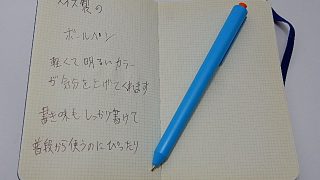 スイス製の
ボールペン
軽くて明るいカラー
が気分を上げてくれます
書き味もしっかり書けて
普段から使うのにぴったり